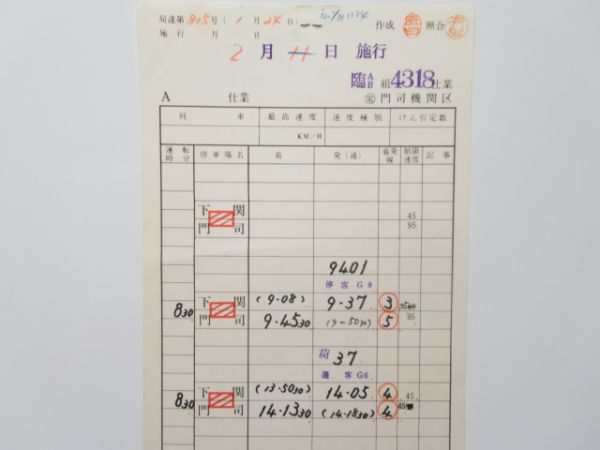 局達第 815号 (1月24日)
作成 照合
施行 月 日
2月 11日 施行
臨 A B 組 4318 仕業
A 仕業 電 門司機関区
列 車 最高速度 速度種別 けん引定数
KM/H
運転時分 停車場名 着 発(通) 着発線 制限速度 記事
下関 45
門司 95
9401
停客G9
下関 (9-08) 9-37 3
830
門司 9.4530 (9-5030) 5 95
荷 37
通客G6
下関 (13.5030) 14.05 4 45
830
門司 14.1330 (14.1830) 4